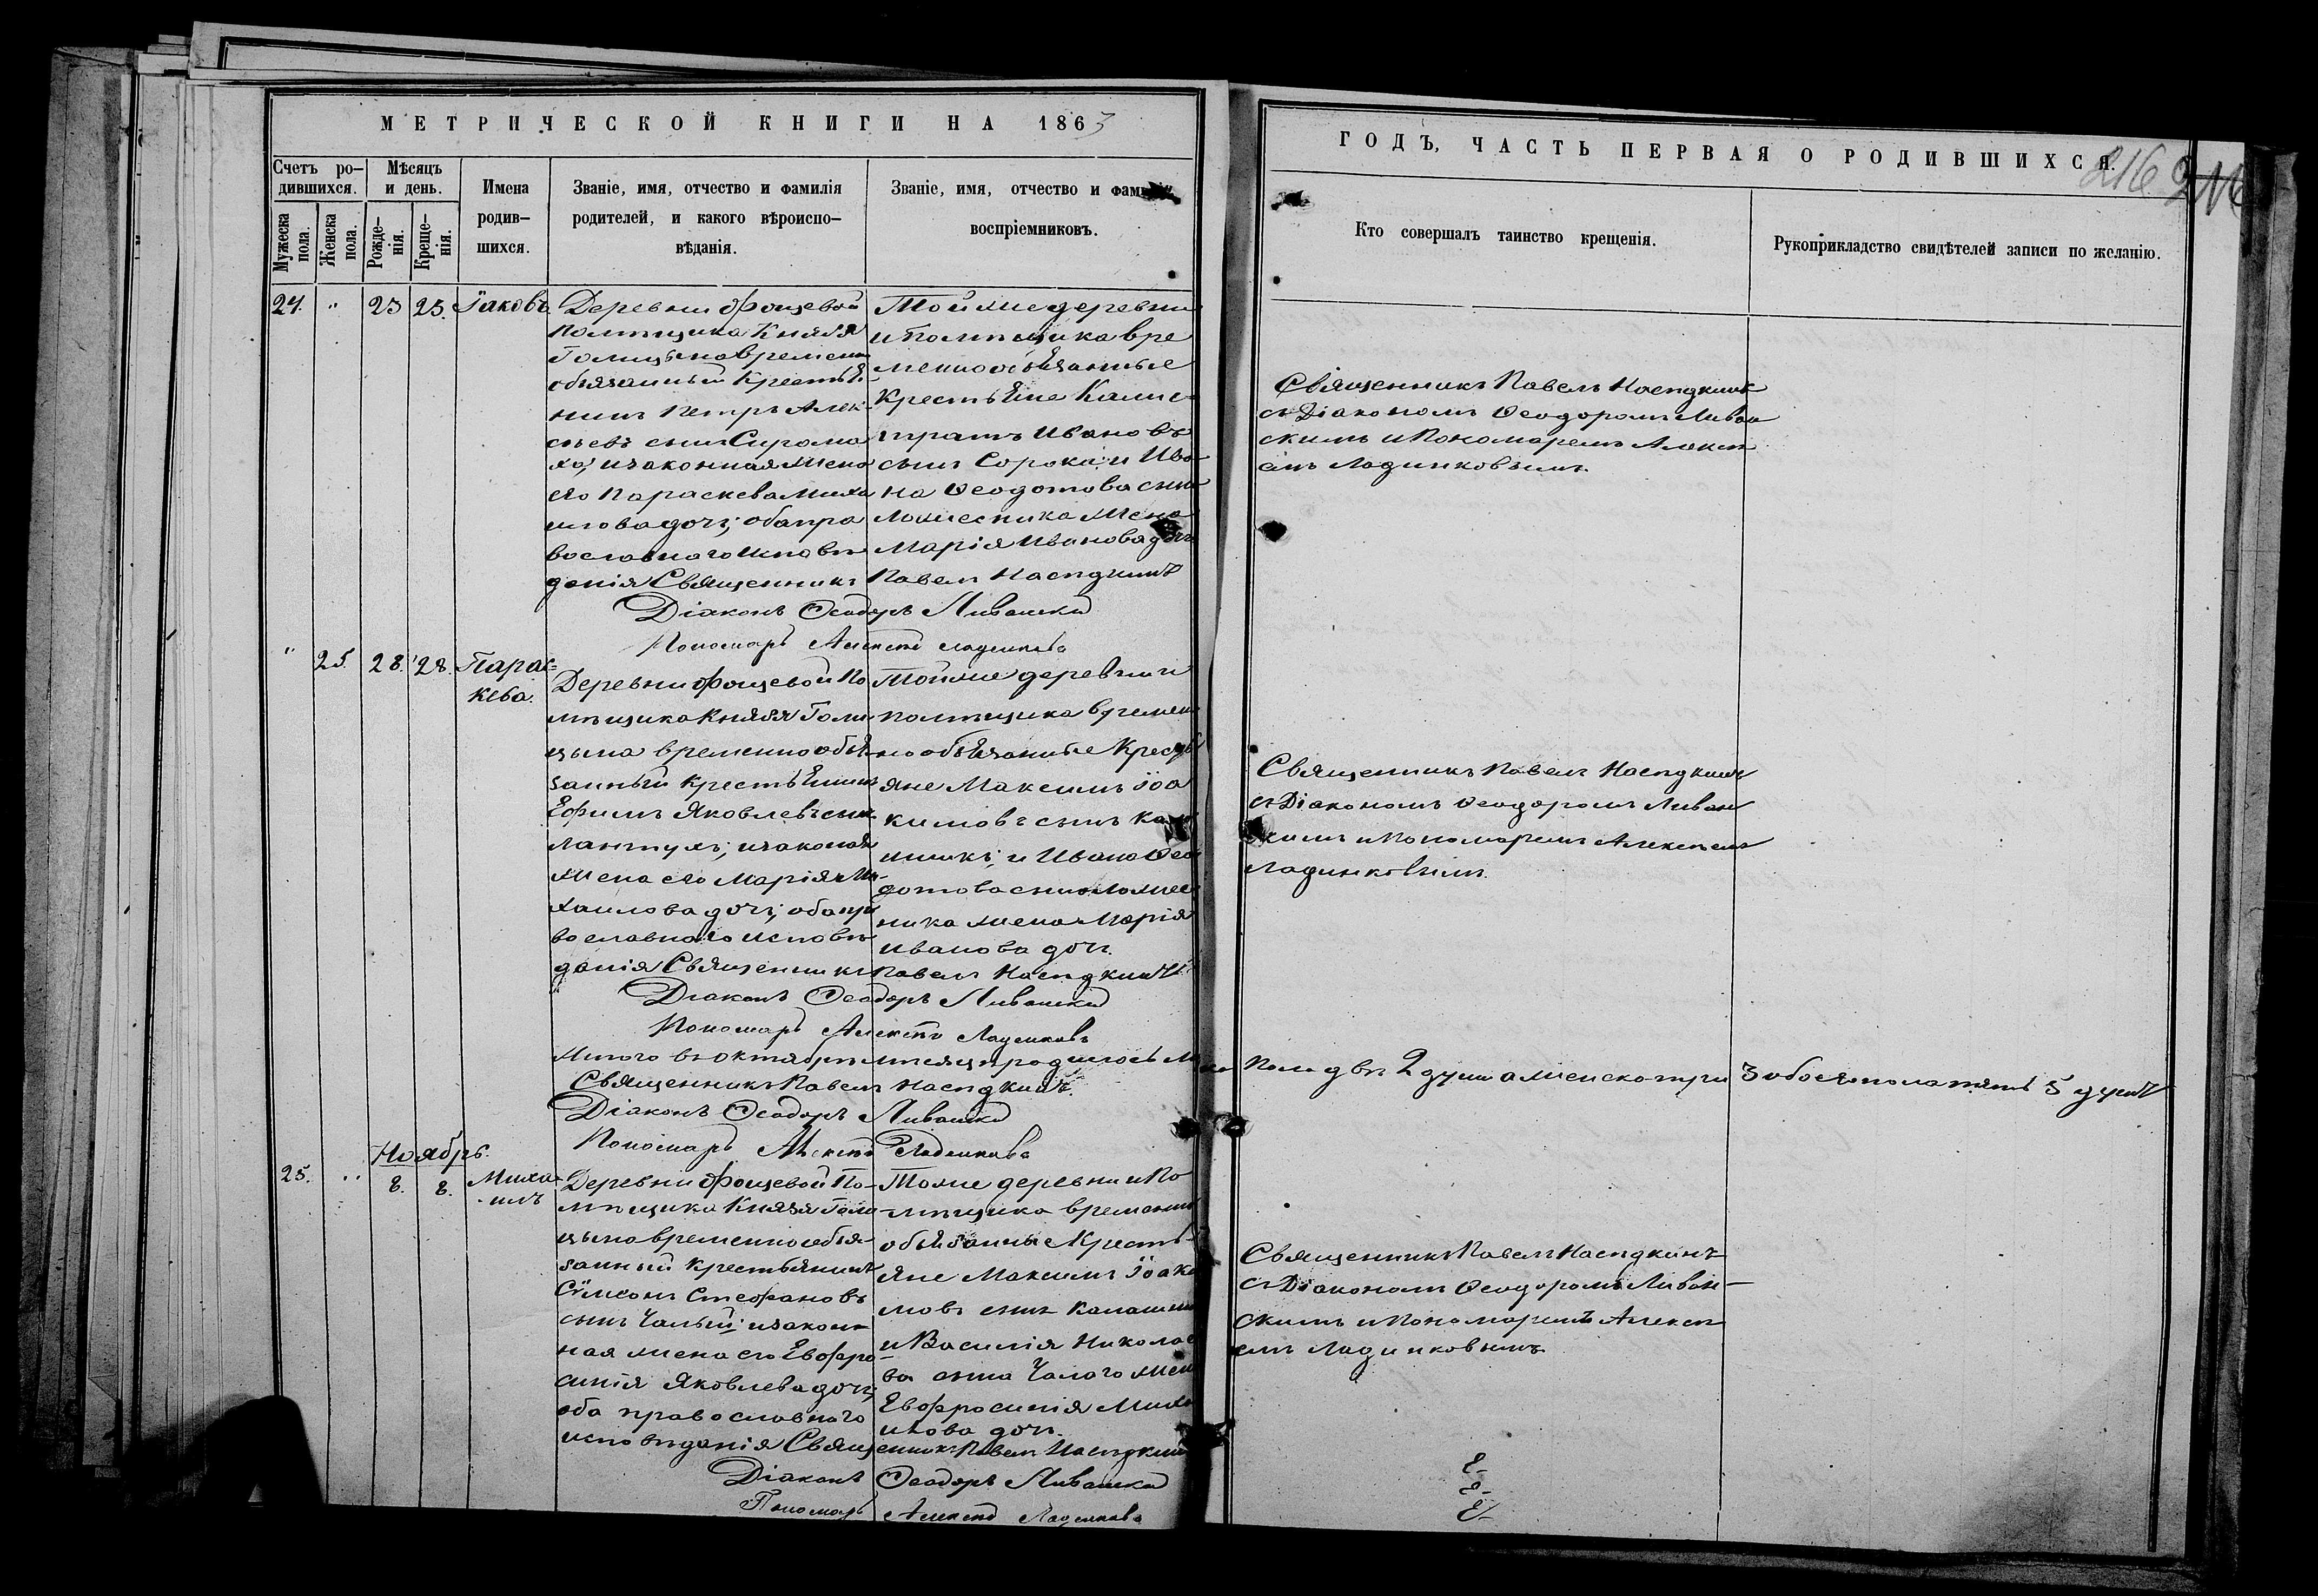 МЕТРИЧЕСКОЙ КНИГИ НА 1863
ГОДЪ, ЧАСТЬ ПЕРВАЯ О РОДИВШИХСЯ.
216
Счетъ ро-
дившихся.
Мѣсяцъ
и день.
Мужеска
пола.
Женска
пола.
Рожде-
нія.
Креще-
нія.
Имена
родив-
шихся.
Званіе, имя, отчество и фамилія
родителей, и какого вѣроиспо-
вѣданія.
Званіе, имя, отчество и фамилія
воспріемниковъ.
Кто совершалъ таинство крещенія.
Рукоприкладство свидѣтелей записи по желанію.
24. " 23 25. Іаковъ
Деревни Фощевой
помѣщика Князя
Голицына времени
обязанный крестья
нинъ Петръ Алек
сѣевъ сынъ Сирома
ха, и законная жена
его Параскева Миха
илова дочь; оба пра
вославного исповѣ
данія Священникъ
Той же деревни
и помѣщика вре
менно обязанные
крестьяне Калис
тратъ Ивановъ
сынъ Сорока, и Ива
на Ѳеодотова сына
жена
Марія Иванова дочь
Павелъ Насѣдкинъ
Діаконъ Ѳеодоръ Ливанскій
Пономарь Алексѣй Ладенковъ
Священникъ Павелъ Насѣдкинъ
съ Діакономъ Ѳеодоромъ Ливан
скимъ и Пономаремъ Алексѣ
емъ Ладинковымъ.
" 25. 28. 28. Парас=
кева.
Деревни Фощевой По
мѣщика Князя Голи
цына временно обя
занный крестьянинъ
Ефимъ Яковлевъ сынъ
и законая
жена его Марія Ми-
хаилова дочь; оба пра
вославнаго исповѣ
данія Священникъ
Той же деревни и
помѣщика времен
но обязанные Кресть
яне Максимъ Іоа
кимовъ сынъ Кала
и Ивана Ѳео
дотова сына
жена Марія
Иванова дочь.
Павелъ Насѣдкинъ
Діаконъ Ѳеодоръ Ливанскій
Пономарь Алексѣй Ладенковъ
Священникъ Павелъ Насѣдкинъ
съ Діакономъ Ѳеодоромъ Ливан
скимъ и Пономаремъ Алексѣемъ
Ладинковымъ.
Итого въ октябрѣ мѣсяцѣ родилось
пола двѣ 2 души а женско три 3 обоего пола пять 5 душъ
Священникъ Павелъ Насѣдкинъ.
Діаконъ Ѳеодоръ Ливанскій
Пономарь Алексѣй Ладенковъ
Ноябрь.
25. " 8. 8. Миха-
илъ
Деревни Фощевой По-
мѣщика Князя Голи
цына временно обя-
занный крестьянинъ
Сѵмеонъ Стефановъ
сынъ Чалый; и закон
ная жена его Евфро
синія Яковлева дочь;
оба православного
исповѣданія Свящ
Тоже деревни и По
мѣщика временно
обязанные Кресть-
яне Максимъ Іоаки
мовъ сынъ
и Василія Николае
ва сына Чалого жена
Евфросинія Миха
илова дочь.
енникъ Павелъ Насѣдкинъ
Діаконъ Ѳеодоръ Ливанскій
Пономарь Алексѣй Ладенковъ
Священникъ Павелъ Насѣдкинъ
съ Діакономъ Ѳеодоромъ Ливан-
скимъ и Пономаремъ Алексѣ
емъ Ладинковымъ.